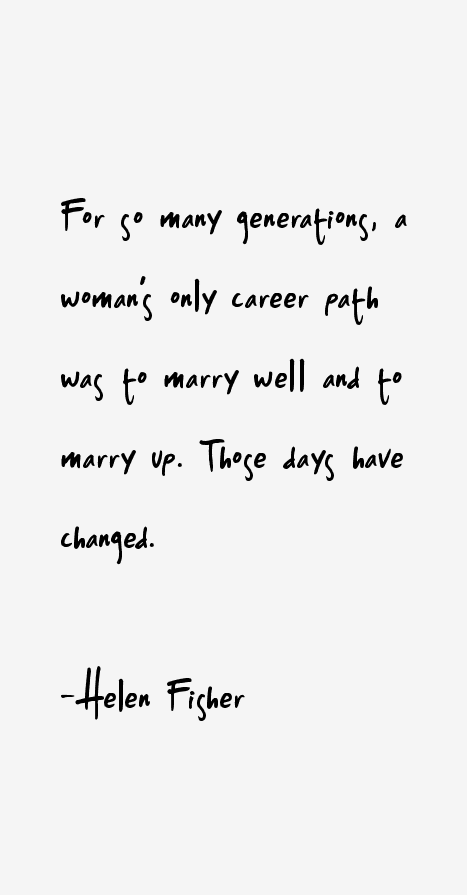 For so many generations, a
woman's only career path
was to marry well and to
marry up. Those days have
changed.
-Helen Fisher